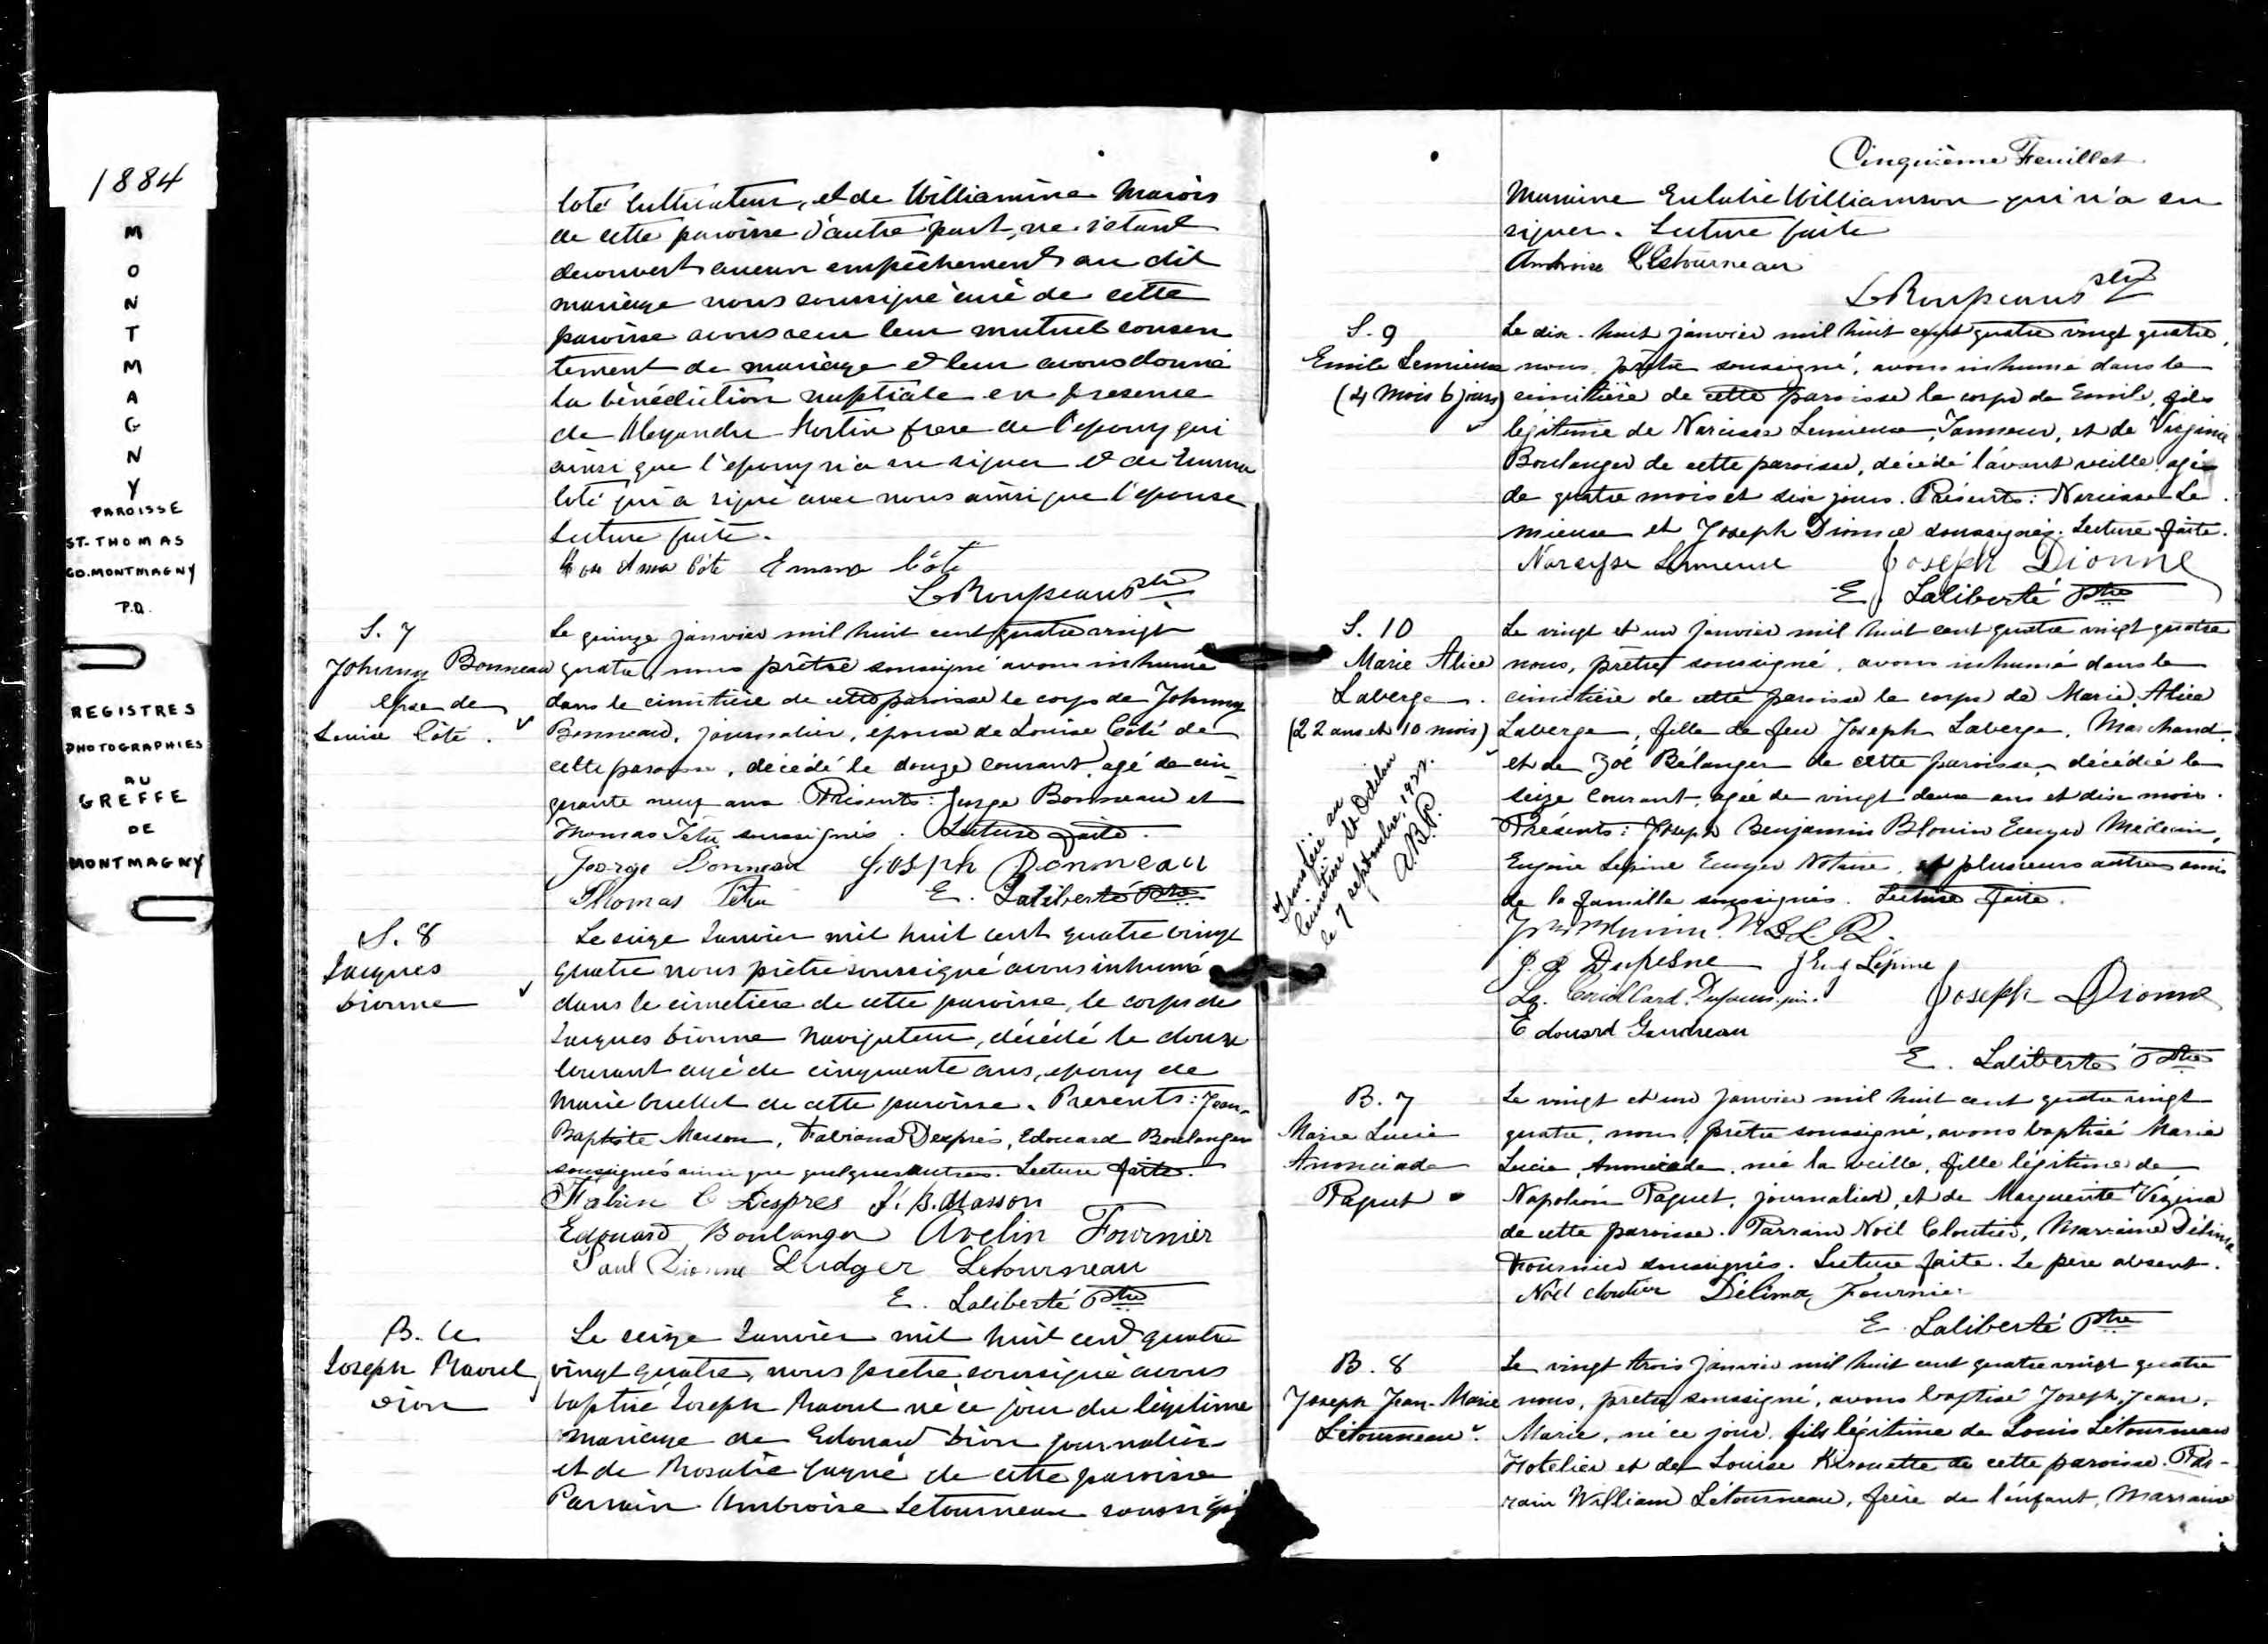 1884
MONTMAGNY
PAROISSE
ST-THOMAS
CO. MONTMAGNY
P.Q.
REGISTRES
PHOTOGRAPHIES
AU
GREFFE
DE
MONTMAGNY
Coté Cultivateur, et de Williamine Marois
de cette paroisse d'autre part, ne s'etant
decouvert aucun empêchement au dit
mariage nous soussigné curé de cette
paroisse avons reçu leur mutuel consen
tement de mariage et leur avons donné
la bénédiction nuptiale en presence
de Alexandre frere de l'epoux qui
ainsi que l'epoux n'a su signer et de Emma
Coté qui a signé avec nous ainsi que l'epouse
Lecture faite.
Rose Anna Côté Emma Côté
Ptre
S. 7
Johnny Bonneau
epse de
Louise Côté.
Le quinze janvier mil huit cent quatre vingt
quatre, nous prêtre soussigné avons inhumé
dans le cimetière de cette paroisse le corps de Johnny
Bonneau, journalier, époux de Louise Côté de
cette paroisse, décédé le douze courant, agé de cin-
quante neuf ans. Présents: Jorge Bonneau et
Thomas Têtu soussignés. Lecture faite.
George Bonneau Joseph Bonneau
Thomas Têtu E. Laliberté Ptre
S. 8
Jacques
Dionne
Le seize Janvier mil huit cent quatre vingt
quatre nous prêtre soussigné avons inhumé
dans le cimetière de cette paroisse, le corps de
Jacques Dionne Navigateur, décédé le douze
Courant agé de cinquante ans, epoux de
Marie Ouellet de cette paroisse. Presents: Jean-
Baptiste Masson, Fabiana Després, Edouard Boulanger
soussignés ainsi que quelques autres. Lecture faite.
Fabien C Despres J. B. Masson
Edouard Boulanger Avelin Fournier
Paul Dionne Ludger Letourneau
E. Laliberté Ptre
B. 6
Joseph Raoul
Dion
Le seize Janvier mil huit cent quatre
vingt quatre, nous prêtre soussigné avons
baptisé Joseph Raoul né ce jour du légitime
mariage de Edouard Dion journalier
et de Rosalie Gagné de cette paroisse
Parrain Ambroise Letourneau soussigné
Cinquième Feuillet
Marraine Eulalie Williamson qui n'a su
signer. Lecture faite
Ambroise Létourneau
Ptre
S. 9
Emile Lemieux
(4 mois 6 jours)
Le dix-huit janvier mil huit cent quatre vingt quatre,
nous, prêtre soussigné, avons inhumé dans le
cimetière de cette paroisse le corps de Emile, fils
légitime de Narcisse Lemieux, Tanneur, et de Virginie
Boulanger de cette paroisse, décédé l'avant veille, agé
de quatre mois et six jours. Présents: Narcisse Le
mieux et Joseph Dionne soussignés. Lecture faite.
Narcysse Lemieux Joseph Dionne
E. Laliberté Ptre
S. 10
Marie Alice
Laberge.
(22 ans et 10 mois)
Transféré au
Cimetière St Odilon
le 7 septembre, 1922.
A.B.P.
Le vingt et un janvier mil huit cent quatre vingt quatre
nous, prêtre soussigné, avons inhumé dans le
cimetière de cette paroisse le corps de Marie, Alice
Laberge, fille de feu Joseph Laberge, Marchand,
et de Zoé Bélanger de cette paroisse, décédée le
seize courant, agée de vingt deux ans et dix mois.
Présents: Joseph Benjamin Blouin Ecuyer Médecin,
Eugène Lepine Ecuyer Notaire, et plusieurs autres amis
de la famille soussignés. Lecture faite.
Dufresne J Eug Lépine
Joseph Dionne
Edouard Gaudreau
E. Laliberté Ptre
B. 7
Marie Lucie
Anonciade
Paquet
Le vingt et un janvier mil huit cent quatre vingt
quatre, nous, prêtre soussigné, avons baptisé Marie
Lucie, Anonciade, née la veille, fille légitime de
Napoléon Paquet, journalier, et de Marguerite Vézina
de cette paroisse. Parrain Noël Cloutier, Marraine Délima
Fournier soussignés. Lecture faite. Le père absent.
Noël cloutier Délima Fournier
E. Laliberté Ptre
B. 8
Joseph Jean-Marie
Létourneau.
Le vingt trois janvier mil huit cent quatre vingt quatre
nous, prêtre soussigné, avons baptisé Joseph, Jean,
Marie, né ce jour, fils légitime de Louis Létourneau
Hotelier et de Louise Kirouette de cette paroisse. Par-
rain William Létourneau, frère de l'enfant, Marraine